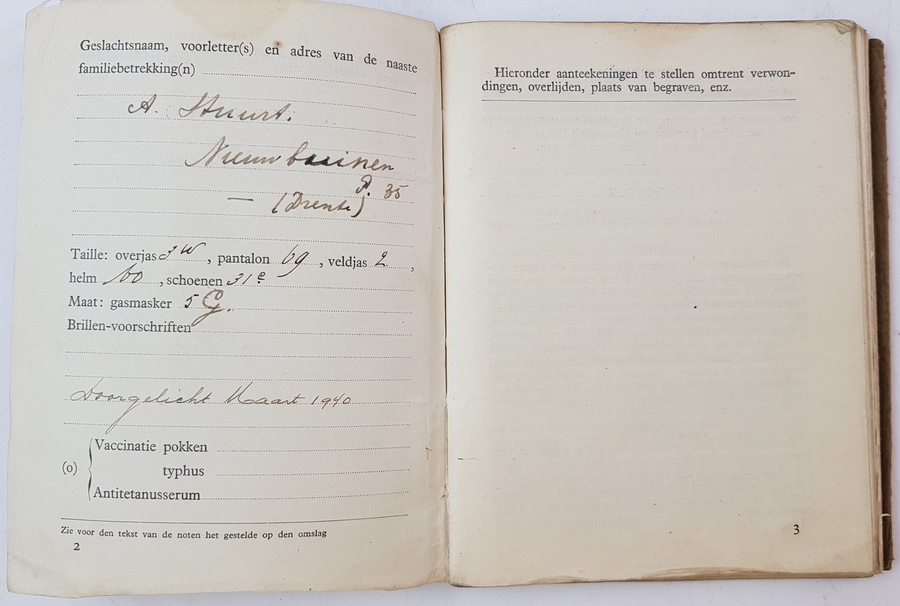 Geslachtsnaam, voorletter(s) en adres van de naaste
familiebetrekking(n)
A. Stuurt.
Nieuw buinen
P. 35
— (Drente)
Taille: overjas 3 W, pantalon 69, veldjas 2,
helm 60, schoenen 31 e
Maat: gasmasker 5 G.
Brillen-voorschriften
Doorgelicht Maart 1940
(o) Vaccinatie pokken
typhus
Antitetanusserum
Zie voor den tekst van de noten het gestelde op den omslag
2
Hieronder aanteekeningen te stellen omtrent verwon-
dingen, overlijden, plaats van begraven, enz.
3